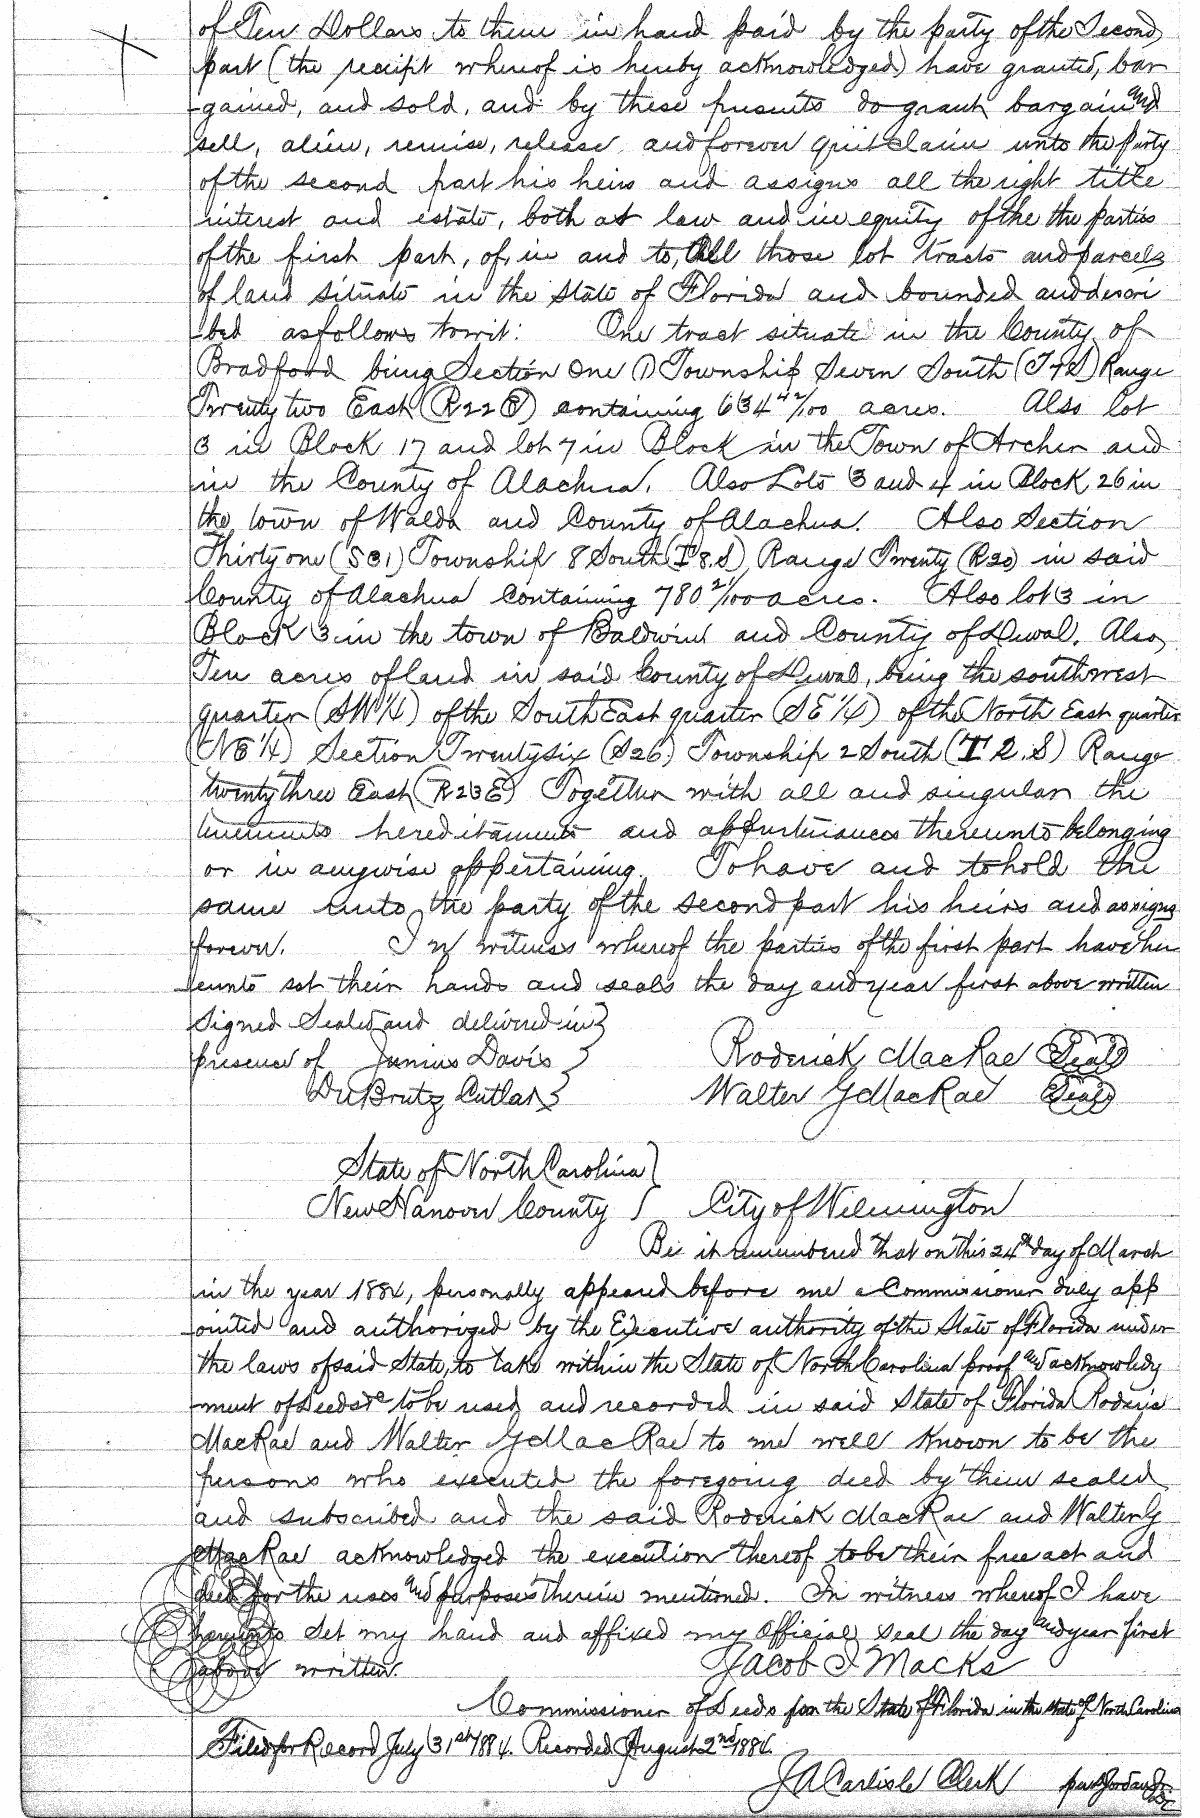 of Ten Dollars to them in hand paid by the party of the Second
part (the receipt whereof is hereby acknowledged) have granted, bar
-gained, and sold, and by these presents do grant bargain and
sell, alien, remise, release and forever quit claim unto the party
of the second part his heirs and assigns all the right title
interest and estate, both at law and in equity of the the parties
of the first part, of, in and to, All those lot tracts and parcels
of land situate in the State of Florida and bounded and descri
-bed as follows towit: One tract situate in the County of
Bradford being Section One (1) Township Seven South (T7S) Range
Twenty two East (R22E) containing 634 42/100 acres. Also lot
3 in Block 17 and lot 7 in Block in the Town of Archer and
in the County of Alachua. Also Lots 3 and 4 in Block 26 in
the town of Waldo and County of Alachua. Also Section
Thirty one (S31) Township 8 South (T8.S) Range Twenty (R20) in said
County of Alachua containing 780 21/100 acres. Also lot 3 in
Block 3 in the town of Baldwin and County of Duval. Also,
Ten acres of land in said County of Duval, being the southwest
quarter (SW 1/4) of the South East quarter (SE 1/4) of the North East quarter
(NE 1/4) Section Twenty six (S26) Township 2 South (T 2. S) Range
twenty three East (R23E) Together with all and singular the
tenements hereditaments and appurtenances thereunto belonging
or in anywise appertaining. To have and to hold the
same unto the party of the second part his heirs and assigns
forever. In witness whereof the parties of the first part have her
eunto set their hands and seals the day and year first above written
Signed Sealed and delivered in }
presence of Junius Davis } Roderick MacRae (Seal)
DuBrutz Cutlar } Walter G MacRae (Seal)
State of North Carolina }
New Hanover County } City of Wilmington
Be it remembered that on this 24th day of March
in the year 1884, personally appeared before me a Commissioner duly app
ointed and authorized by the Executive authority of the State of Florida under
the laws of said State, to take within the State of North Carolina proof and acknowledg
-ment of Deeds &c to be used and recorded in said State of Florida Roderic
MacRae and Walter G MacRae to me well known to be the
persons who executed the foregoing deed by them sealed
and subscribed and the said Roderick MacRae and Walter G
MacRae acknowledged the execution thereof to be their free act and
deed for the uses and purposes therein mentioned. In witness whereof I have
hereunto set my hand and affixed my Official seal the day and year first
above written. Jacob I Macks
Commissioner of Deeds for the State of Florida in the State of North Carolina
Filed for Record July 31st 1884. Recorded August 2nd 1884.
J A Carlisle Clerk per